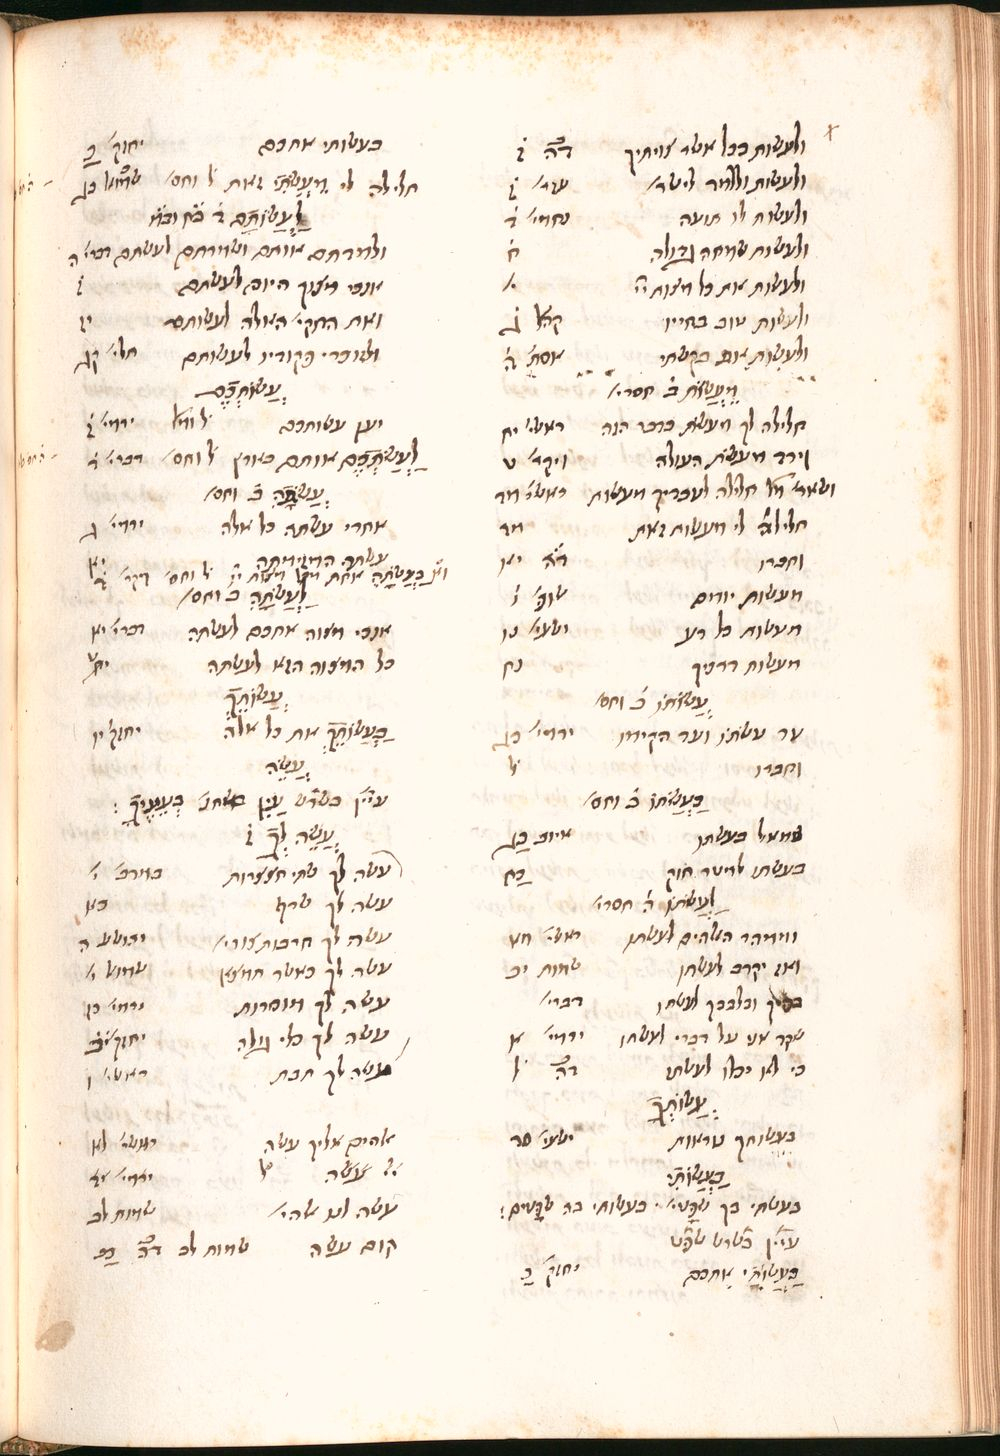 ולעשות ככל אשר צויתיך דה̇ ז̇
ולעשות וללמד לישר׳ עזר׳ ז̇
ולעשות לו תועה נחמי׳ ד̇
ולעשות שמחה גדולה ח̇
ולעשות את כל מצות י׳
ולעשות טוב בחייו קהל׳ ג̇
ולעשות את בקשתי אסת׳ ה̇
מֵעֲשׂת ב̇ חסרי׳
חלילה לך מעשת כדבר הזה ראשי׳ יח
וירד מעשת העולה ויקר׳ ט
ושאר׳ חלילה לעבדיך מעשות ראשי׳ מד
חלילה לי מעשות זאת מד
וחברו דה̇ יא
מעשות ידיהם
מעשות כל רע ישעי׳ נו
מעשות דרכיך נח
עֲשׂתוֹ ב̇ וחס׳
עד עשתו ועד הקימו ירמי׳ כג
וחברו ל׳
בַּעֲשׂתוֹ ב̇ וחס׳
שמאל בעשתו איוב כג
בעשתו למטר חוק כח
לַעֲשׂתוֹ ה̇ חסרי׳
וימהר לעשתו ראשי׳ יח
ואז יקרב לעשתו שמות יב
בפיך ובלבבך לעשתו דברי׳
שקד אני על דברי לעשתו ירמי׳ א
כי לא יכלו לעשתו דה̇ ל׳
עֲשׂוֹתְךָ
בעשותך נוראות ישעי׳ סד
בַּעֲשׂוֹתִי
בעשתי בך שפטי׳ בעשותי בה שפטים:
עיין בשרש שפט
בַּעֲשׂוֹתִי אתכם יחזק׳ כ̇
בעשותי אתכם יחזק׳ כ̇
חלילה לי מֵעֲשׂתִי זאת ל׳ וחס׳ שמואל כג
לַעֲשׂוֹתָם
ולמדתם אותם ושמרתם לעשתם דברי׳ ה
אנכי מצוך היום לעשתם ז̇
ואת החקי׳ האלה לעשותם יז
ולזכרי פקודיו לעשותם תלי׳ קג
עֲשׂוֹתְכֶם
יען עשותכם ל׳ ומל׳ ירמי׳ ז̇
לַעֲשׂתְכֶם אותם בארץ ל׳ וחס׳ דברי׳ ד
עֲשׂתָהּ ב̇ וחס׳
אחרי עשתה כל אלה ירמי׳ ג
עשתה המזימתה יא
בַּעֲשׂתָהּ אחת מכל מצות י״י ל׳ וחס׳ ויקר׳ ד
לַעֲשׂתָהּ ב̇ וחס׳
אנכי מצוה אתכם לעשתה דברי׳ יא
כל המצוה הזא לעשתה יט
עֲשׂוֹתֵךְ
בַּעֲשׂוֹתֵךְ את כל אלה יחזק׳ יו
עֲשֵׂה
עיין בשרש
עֲשֵׂה לְךָ ז̇
עשה לך שתי חצצרות במדב׳ י׳
עשה לך שרף כא
עשה לך חרבות צורי׳ יהושע ה
עשה לך כאשר תמצא שמואל י׳
עשה לך מוסרות ירמי׳ כז
עשה לך כלי גולה יחזק׳ יב
עשה לך תבת ראשי׳ ו
אלהים אליך עשה ראשי׳ לא
עשה ירמי׳ יד
עשה לנו אלהי׳ שמות לב
קום עשה שמות לב דה̇ כב